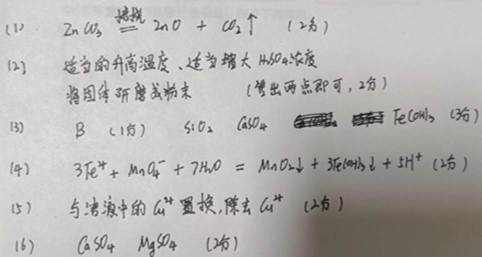 (1) ZnCO₃ 焙烧 ═ ZnO + CO₂↑ (2分)
(2) 适当的升高温度、适当增大 H₂SO₄浓度
将固体研磨成粉末 (答出两点即可,2分)
(3) B (1分) SiO₂ CaSO₄ Fe(OH)₃ (3分)
(4) 3Fe²⁺ + MnO₄⁻ + 7H₂O = MnO₂↓ + 3Fe(OH)₃↓ + 5H⁺ (2分)
(5) 与溶液中的 Cu²⁺ 置换,除去 Cu²⁺ (2分)
(6) CaSO₄ MgSO₄ (2分)